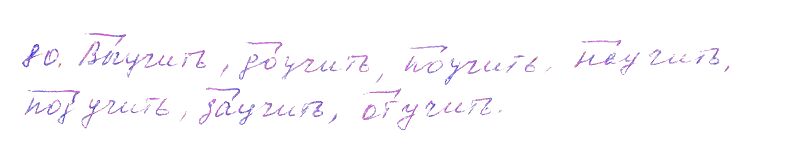 80. Выучить, доучить, поучить. научить,
подучить, заучить, отучить.